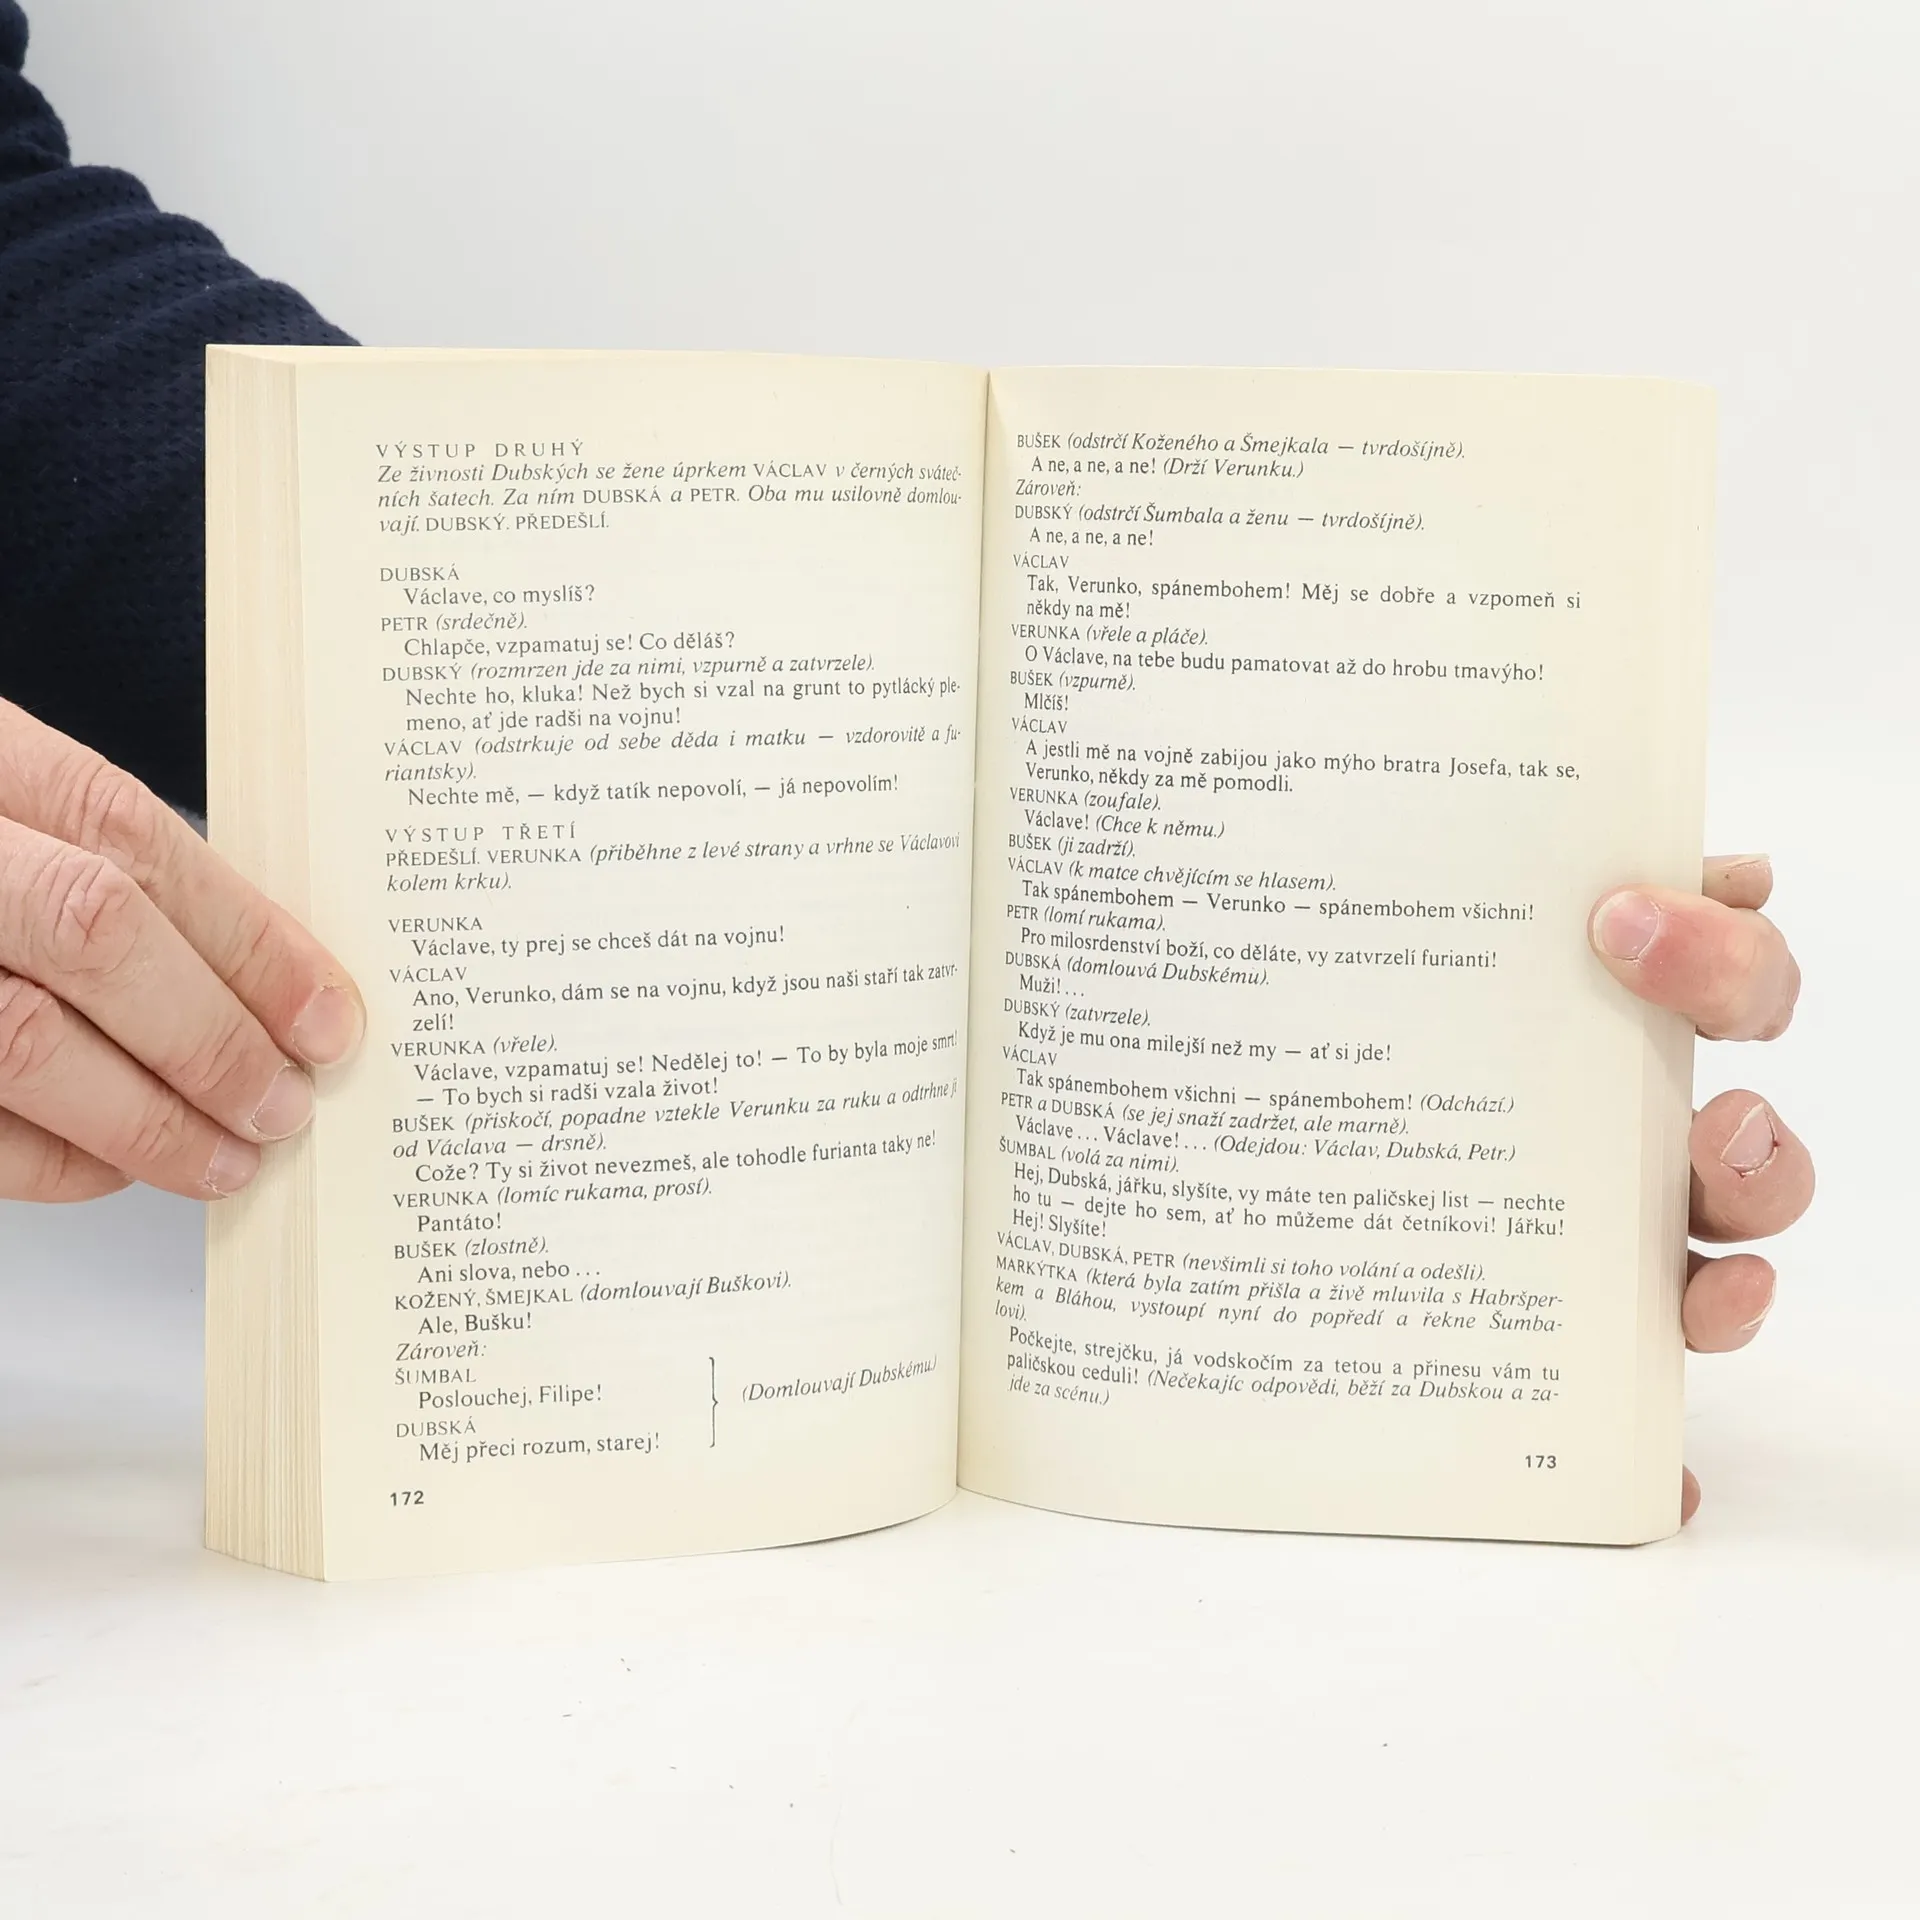 VÝSTUP DRUHÝ
Ze živnosti Dubských se žene úprkem VÁCLAV v černých sváteč-
ních šatech. Za ním DUBSKÁ a PETR. Oba mu usilovně domlou-
vají. DUBSKÝ. PŘEDEŠLÍ.
DUBSKÁ
Václave, co myslíš?
PETR (srdečně).
Chlapče, vzpamatuj se! Co děláš?
DUBSKÝ (rozmrzen jde za nimi, vzpurně a zatvrzele).
Nechte ho, kluka! Než bych si vzal na grunt to pytlácký ple-
meno, ať jde radši na vojnu!
VÁCLAV (odstrkuje od sebe děda i matku — vzdorovitě a fu-
riantsky).
Nechte mě, — když tatík nepovolí, — já nepovolím!
VÝSTUP TŘETÍ
PŘEDEŠLÍ. VERUNKA (přiběhne z levé strany a vrhne se Václavovi
kolem krku).
VERUNKA
Václave, ty prej se chceš dát na vojnu!
VÁCLAV
Ano, Verunko, dám se na vojnu, když jsou naši staří tak zatvr-
zelí!
VERUNKA (vřele).
Václave, vzpamatuj se! Nedělej to! — To by byla moje smrt!
— To bych si radši vzala život!
BUŠEK (přiskočí, popadne vztekle Verunku za ruku a odtrhne ji
od Václava — drsně).
Cože? Ty si život nevezmeš, ale tohodle furianta taky ne!
VERUNKA (lomíc rukama, prosí).
Pantáto!
BUŠEK (zlostně).
Ani slova, nebo ...
KOŽENÝ, ŠMEJKAL (domlouvají Buškovi).
Ale, Bušku!
Zároveň:
ŠUMBAL
Poslouchej, Filipe!
DUBSKÁ
Měj přeci rozum, starej!
(Domlouvají Dubskému.)
172
BUŠEK (odstrčí Koženého a Šmejkala — tvrdošíjně).
A ne, a ne, a ne! (Drží Verunku.)
Zároveň:
DUBSKÝ (odstrčí Šumbala a ženu — tvrdošíjně).
A ne, a ne, a ne!
VÁCLAV
Tak, Verunko, spánembohem! Měj se dobře a vzpomeň si
někdy na mě!
VERUNKA (vřele a pláče).
O Václave, na tebe budu pamatovat až do hrobu tmavýho!
BUŠEK (vzpurně).
Mlčíš!
VÁCLAV
A jestli mě na vojně zabijou jako mýho bratra Josefa, tak se,
Verunko, někdy za mě pomodli.
VERUNKA (zoufale).
Václave! (Chce k němu.)
BUŠEK (ji zadrží).
VÁCLAV (k matce chvějícím se hlasem).
Tak spánembohem — Verunko — spánembohem všichni!
PETR (lomí rukama).
Pro milosrdenství boží, co děláte, vy zatvrzelí furianti!
DUBSKÁ (domlouvá Dubskému).
Muži! ...
DUBSKÝ (zatvrzele).
Když je mu ona milejší než my — ať si jde!
VÁCLAV
Tak spánembohem všichni — spánembohem! (Odchází.)
PETR a DUBSKÁ (se jej snaží zadržet, ale marně).
Václave ... Václave! ... (Odejdou: Václav, Dubská, Petr.)
ŠUMBAL (volá za nimi).
Hej, Dubská, jářku, slyšíte, vy máte ten paličskej list — nechte
ho tu — dejte ho sem, ať ho můžeme dát četníkovi! Jářku!
Hej! Slyšíte!
VÁCLAV, DUBSKÁ, PETR (nevšimli si toho volání a odešli).
MARKÝTKA (která byla zatím přišla a živě mluvila s Habršper-
kem a Bláhou, vystoupí nyní do popředí a řekne Šumba-
lovi).
Počkejte, strejčku, já vodskočím za tetou a přinesu vám tu
paličskou ceduli! (Nečekajíc odpovědi, běží za Dubskou a za-
jde za scénu.)
173